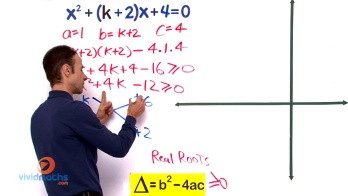 x² + (k + 2)x + 4 = 0
a=1 b=k+2 c=4
+2)(k+2) - 4.1.4
+4k+4-16≥0
+4k -12≥0
+2
Real Roots
Δ = b² – 4ac ≥0
vividmaths.com